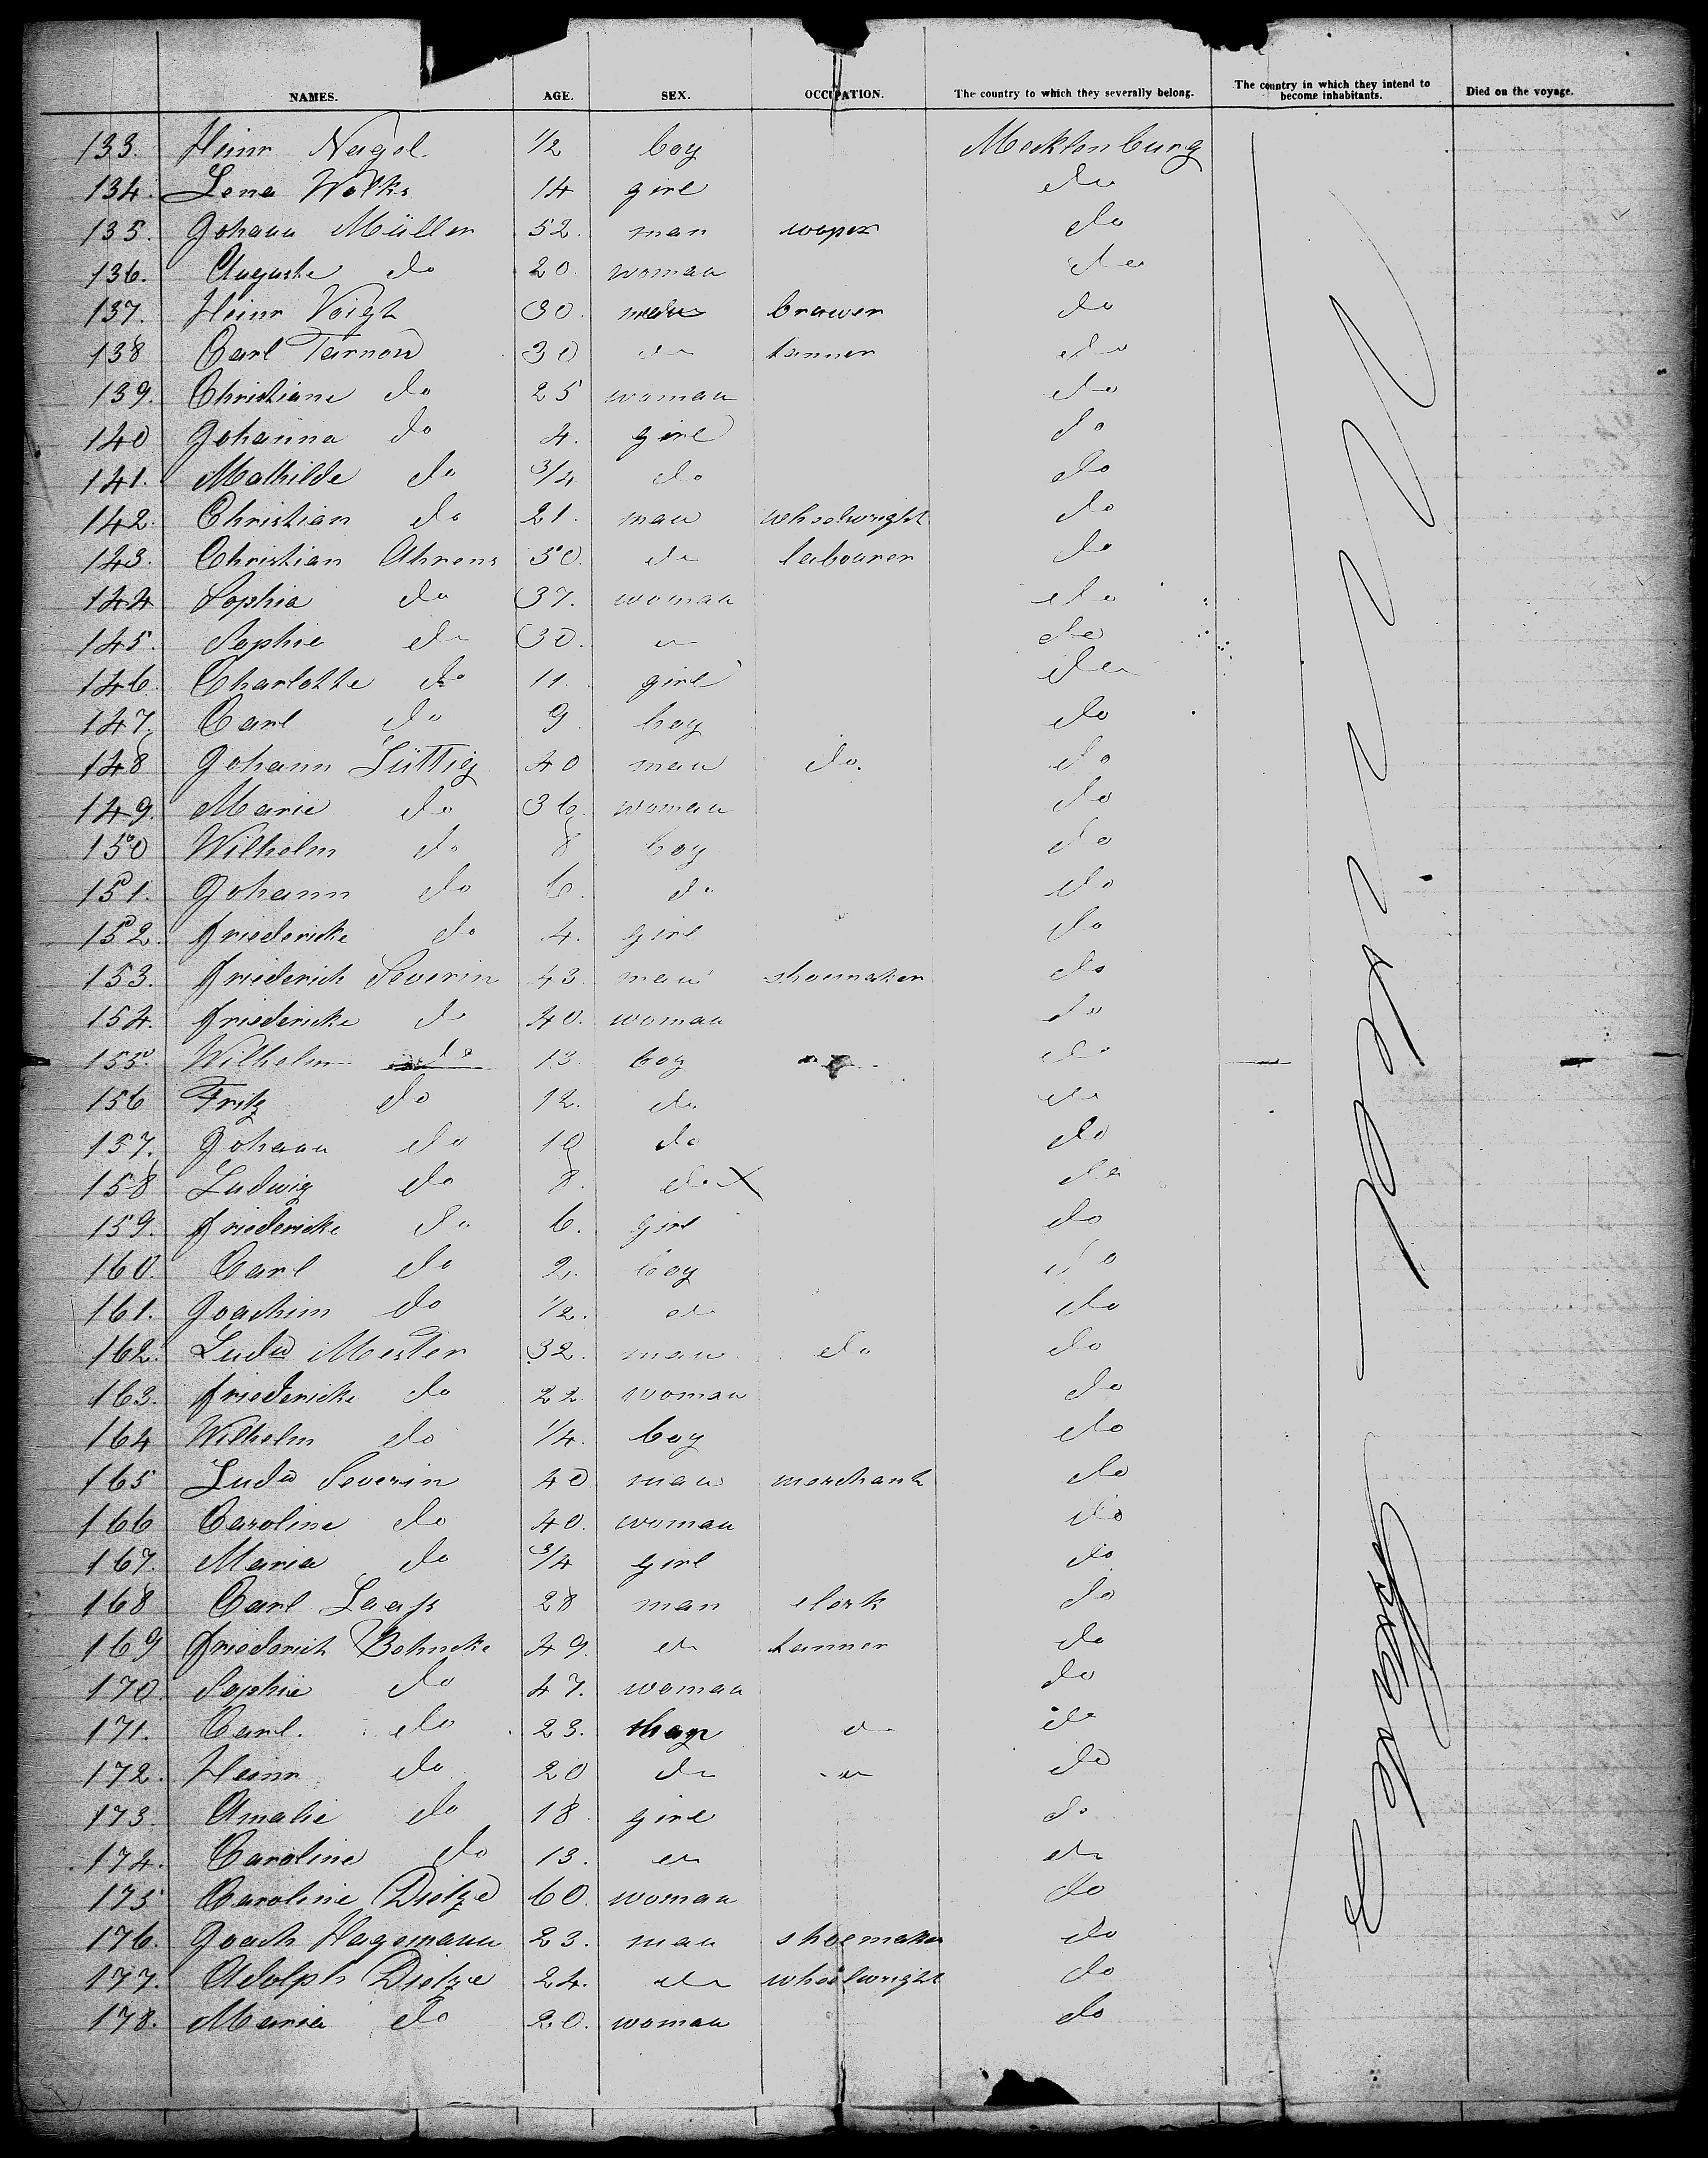 NAMES. AGE. SEX. OCCUPATION. The country to which they severally belong. The country in which they intend to become inhabitants. Died on the voyage.
133. Heinr Nagel 1/2 boy Mecklenburg
134. Lena 14 girl do
135. Johann Müller 52. man do
136. Auguste do 20. woman do
137. Heinr Voigt 30. brewer do
138 Carl Tarnow 30 do tanner do
139. Christiane do 25 woman do
140 Johanna do 4. girl do
141. Mathilde do 3/4 do do
142. Christian do 21. man wheelwright do
143. Christian Ahrens 50. do labourer do
144 Sophia do 37. woman do
145. Sophie do 30. do do
146. Charlotte do 11. girl do
147. Carl do 9 boy do
148 Johann Lüttig 40 man do. do
149. Marie do 36. woman do
150 Wilhelm do 8 boy do
151. Johann do 6. do do
152. Friedericke do 4. girl do
153. Friederich Severin 43 man shoemaker do
154. Friedericke do 40. woman do
155. Wilhelm do 13. boy do
156 Fritz do 12. do do
157. Johann do 10 do do
158 Ludwig do 8. do X do
159. Friedericke do 6. girl do
160. Carl do 2. boy do
161. Joachim do 1/2. do do
162. Ludw Mester 32. man do do
163. Friedericke do 22. woman do
164 Wilhelm do 1/4. boy do
165 Ludw Severin 40 man merchant do
166 Caroline do 40. woman do
167. Maria do 3/4 girl do
168 Carl Laafs 28 man clerk do
169 Friederich Bohncke 49. do tanner do
170. Sophie do 47. woman do
171. Carl. do 23. man do do
172. Heinr do 20 do do do
173. Amalie do 18 girl do
174. Caroline do 13. do do
175 Caroline Dietze 60. woman do
176. Joach Hagemann 23. man shoemaker do
177. Adolph Dietze 24. do wheelwright do
178. Maria do 20. woman do
United States